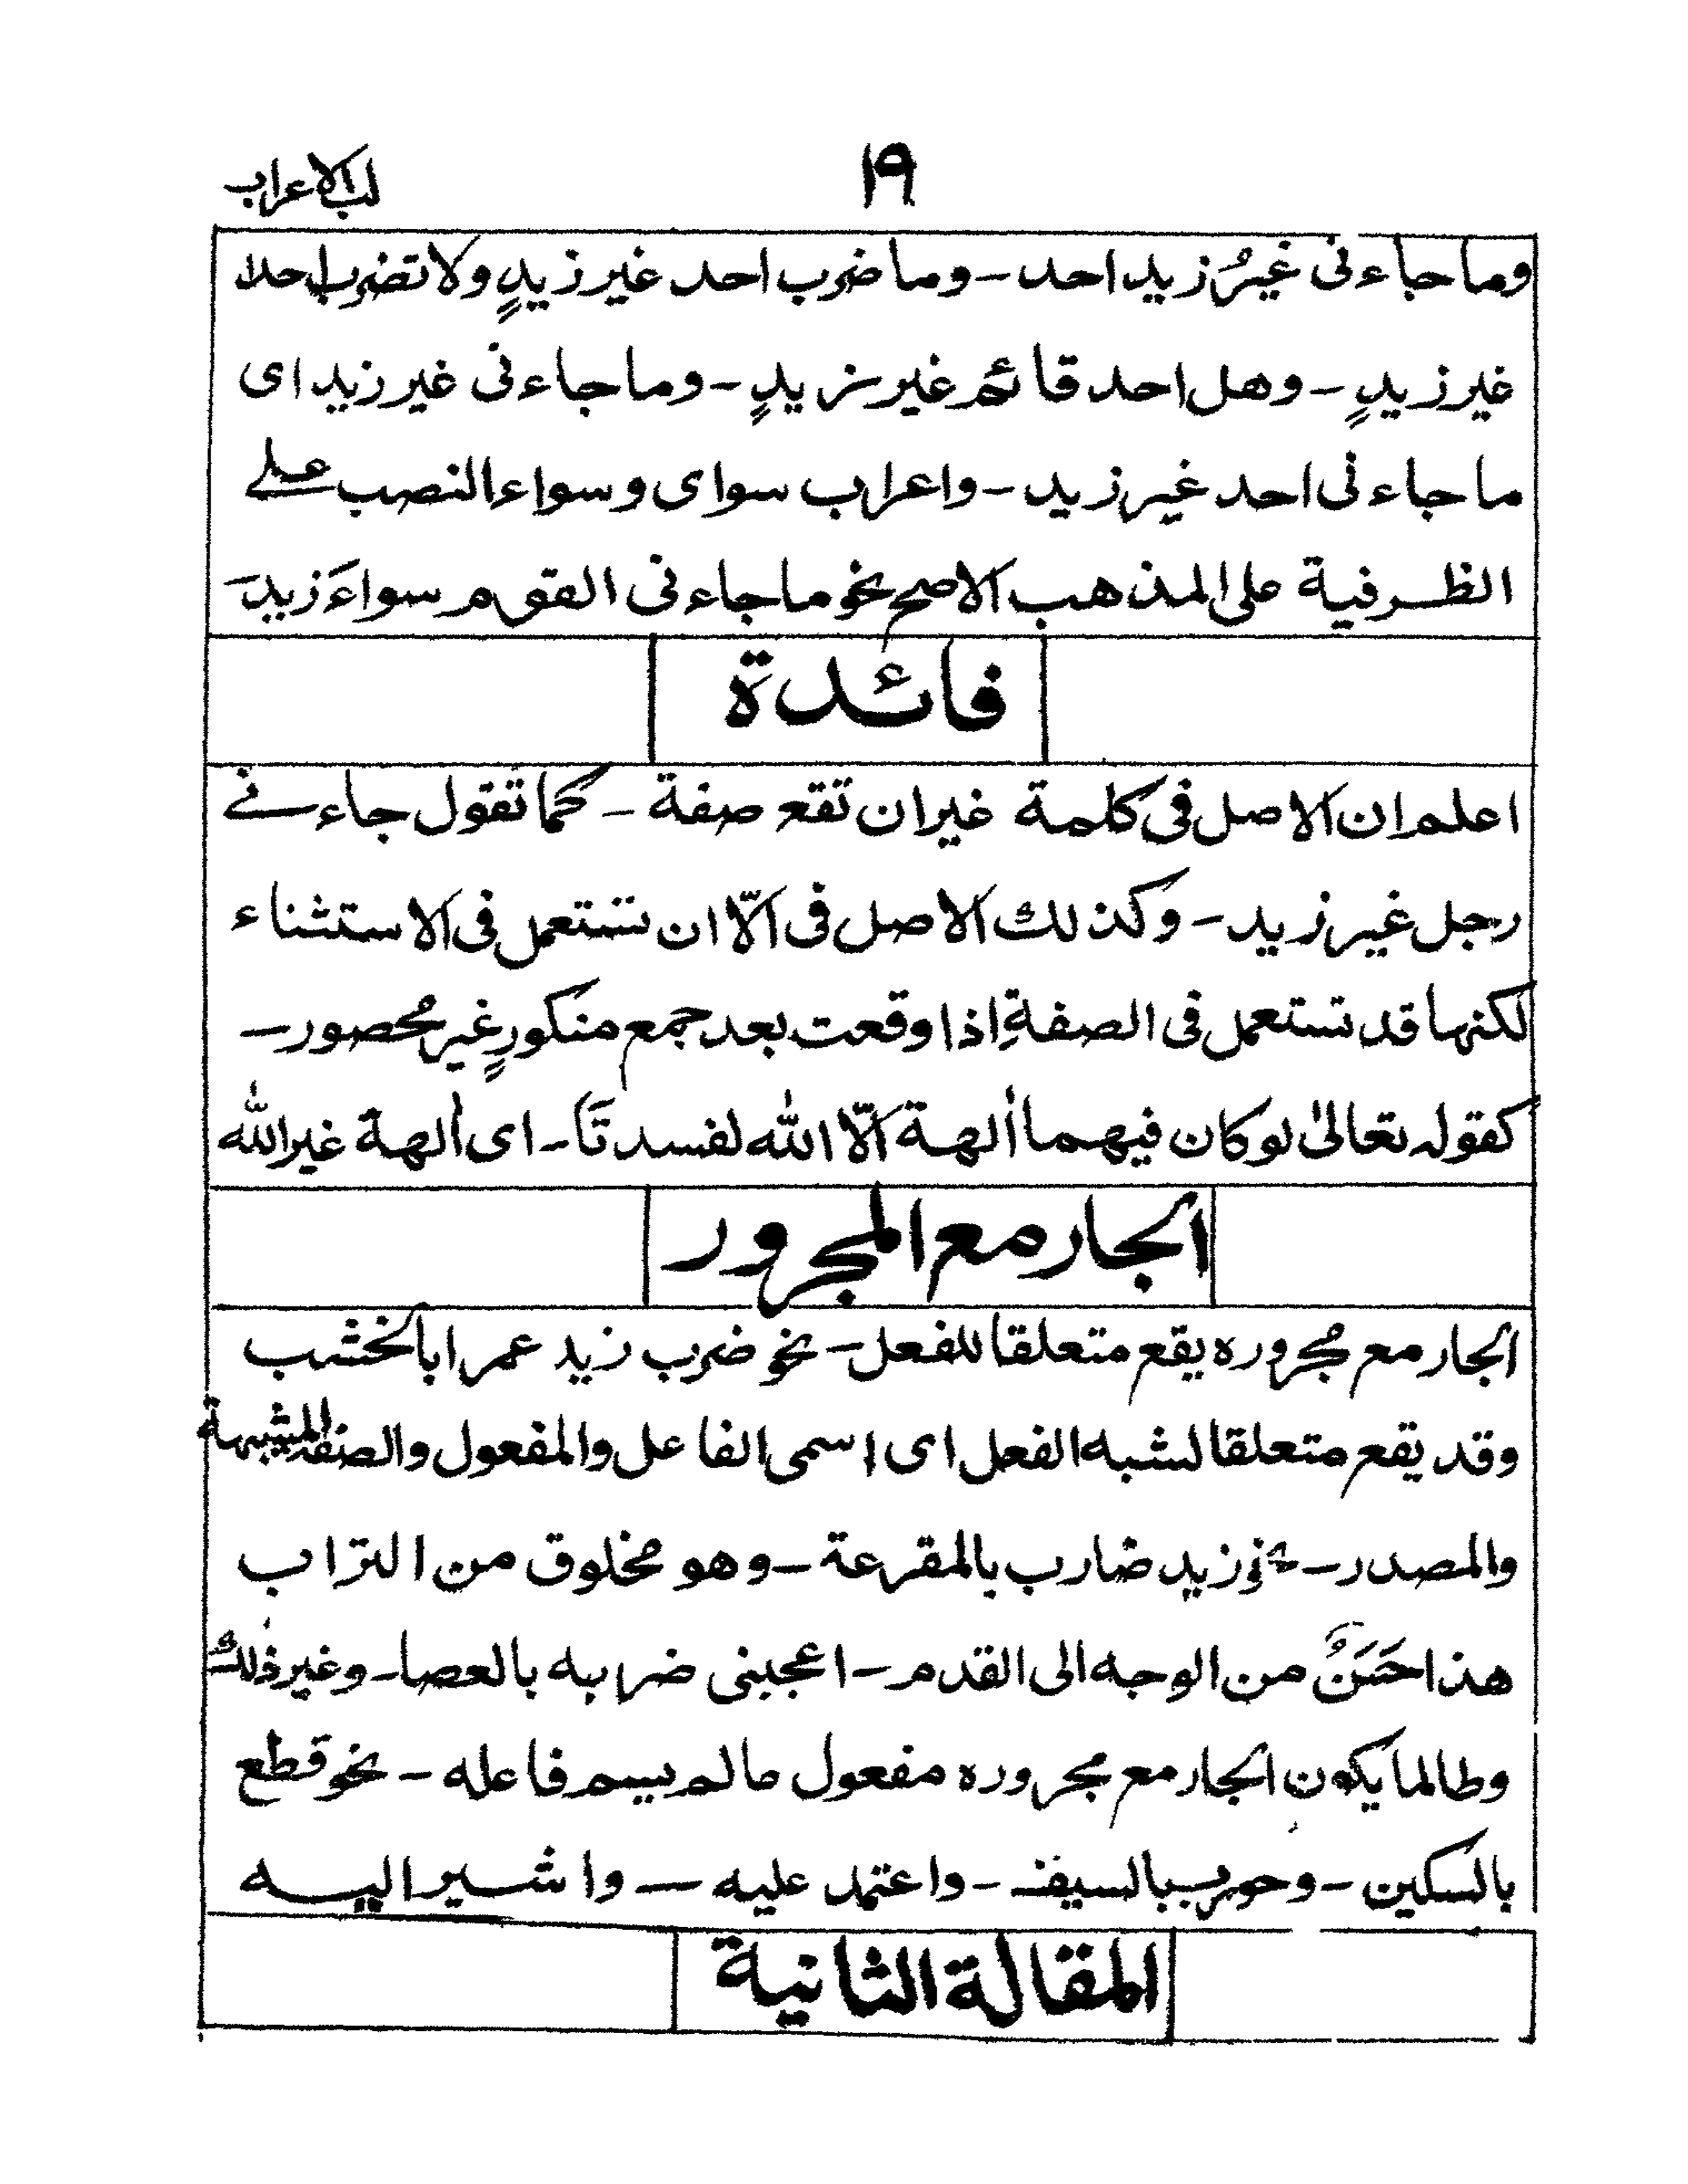 لب الاعراب
١٩
وما جاءنى غيرُ زيد احد - وما ضرب احد غير زيدٍ ولا تضرب احدا
غير زيدٍ - وهل احد قائم غير زيدٍ - وما جاءنى غير زيد اى
ما جاءنى احد غير زيد - واعراب سواى وسواء النصب على
الظرفية على المذهب الاصح نحو ما جاءنى القوم سواءَ زيد -
فائدة
اعلم ان الاصل فى كلمة غير ان تقع صفة - كما تقول جاءنى
رجل غير زيد - وكذلك الاصل فى الّا ان تستعمل فى الاستثناء
لكنها قد تستعمل فى الصفةِ اذا وقعت بعد جمع منكورٍ غير محصور -
كقوله تعالىٰ لو كان فيهما اٰلهة الّا الله لفسدتَا - اى اٰلهة غير الله
الجار مع المجرور
الجار مع مجروره يقع متعلقا للفعل - نحو ضرب زيد عمرا بالخشب
وقد يقع متعلقا لشبه الفعل اى اسمى الفاعل والمفعول والصفة المشبهة
والمصدر - نحو زيد ضارب بالمقرعة - وهو مخلوق من التراب
هذا حَسَنٌ من الوجه الى القدم - اعجبنى ضرابه بالعصا - وغير ذٰلك
وطالما يكون الجار مع مجروره مفعول ما لم يسم فاعله - نحو قطع
بالسكين - وحورب بالسيف - واعتمد عليه - واشير اليه
المقالة الثانية